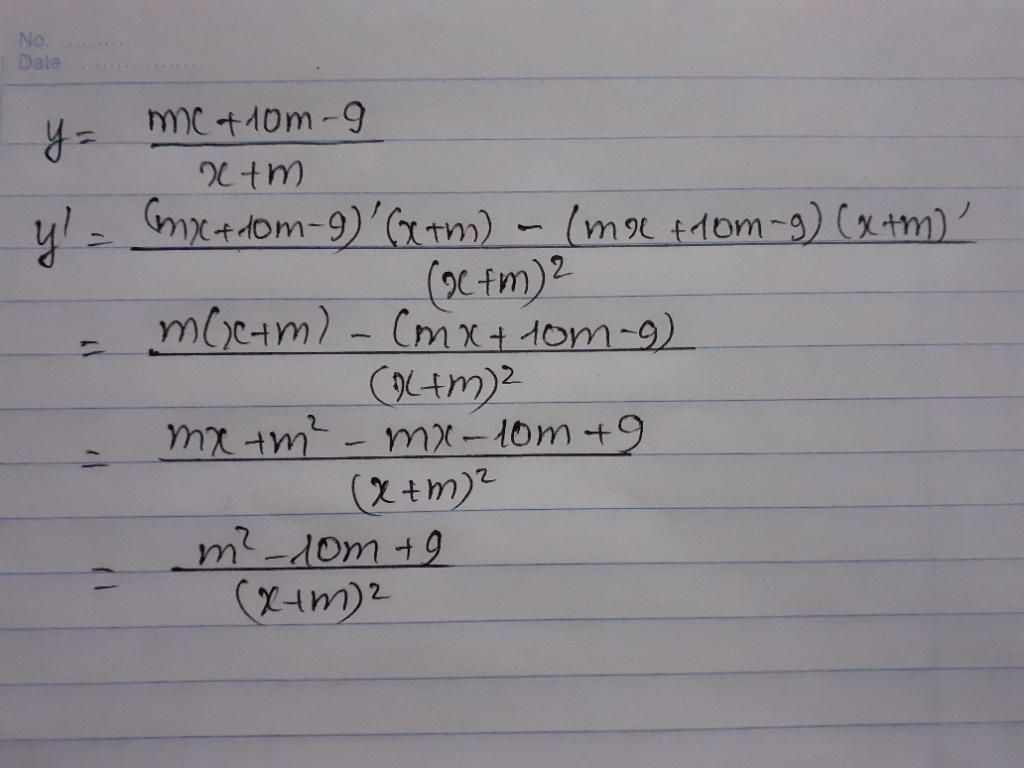 No. ..........
Date ....................
y = \frac{mx+10m-9}{x+m}
y' = \frac{(mx+10m-9)'(x+m) - (mx+10m-9)(x+m)'}{(x+m)^2}
= \frac{m(x+m) - (mx+10m-9)}{(x+m)^2}
= \frac{mx+m^2-mx-10m+9}{(x+m)^2}
= \frac{m^2-10m+9}{(x+m)^2}